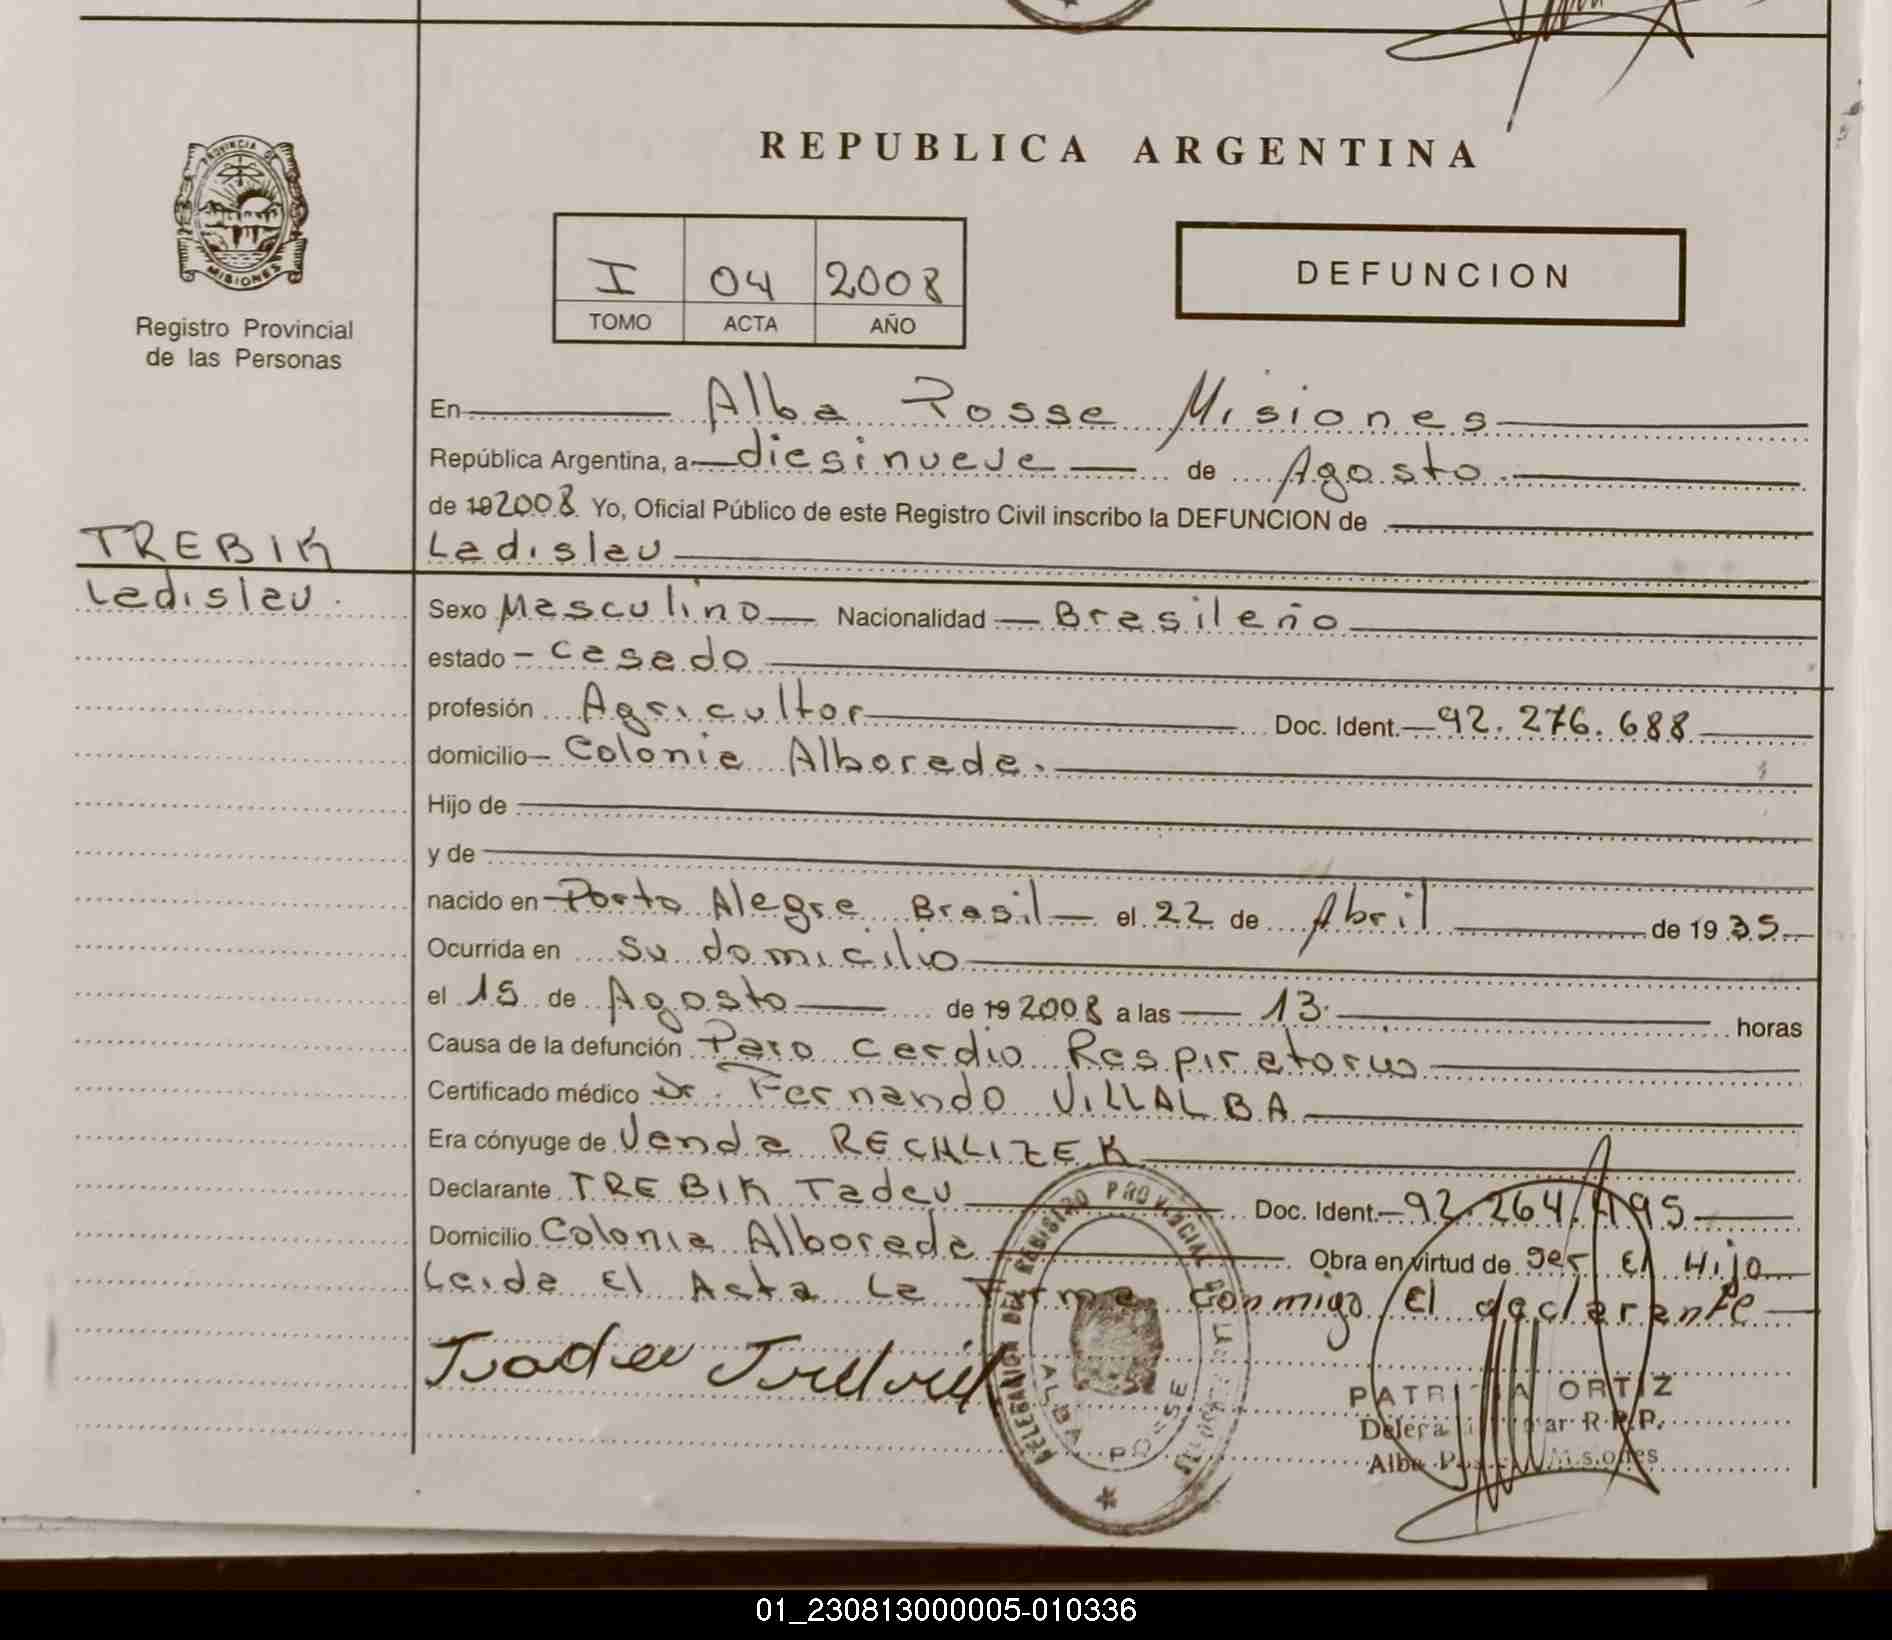 REPUBLICA ARGENTINA
PROVINCIA DE MISIONES
Registro Provincial
de las Personas
I 04 2008
TOMO ACTA AÑO
DEFUNCION
TREBIK
Ladislau.
En Alba Posse Misiones
República Argentina, a diesinueve de Agosto.
de 192008 Yo, Oficial Público de este Registro Civil inscribo la DEFUNCION de
Ladislau
Sexo Masculino Nacionalidad Brasileño
estado - casado
profesión Agricultor Doc. Ident. 92.276.688
domicilio Colonia Alborada.
Hijo de
y de
nacido en Porto Alegre Brasil el 22 de Abril de 1935
Ocurrida en su domicilio
el 15 de Agosto de 19 2008 a las 13. horas
Causa de la defunción Paro Cardio Respiratorio
Certificado médico Dr. Fernando VILLALBA
Era cónyuge de Vanda RECHLIZEK
Declarante TREBIK Tadeu Doc. Ident. 92.264.495
Domicilio Colonia Alborada Obra en virtud de ser El Hijo
Leida El Acta La Firma Conmigo El declarante
DELEGACION DEL REGISTRO PROVINCIAL DE LAS PERSONAS
ALBA POSSE
PATRICIA ORTIZ
R.P.P.
Alba Posse Misiones
01_230813000005-010336